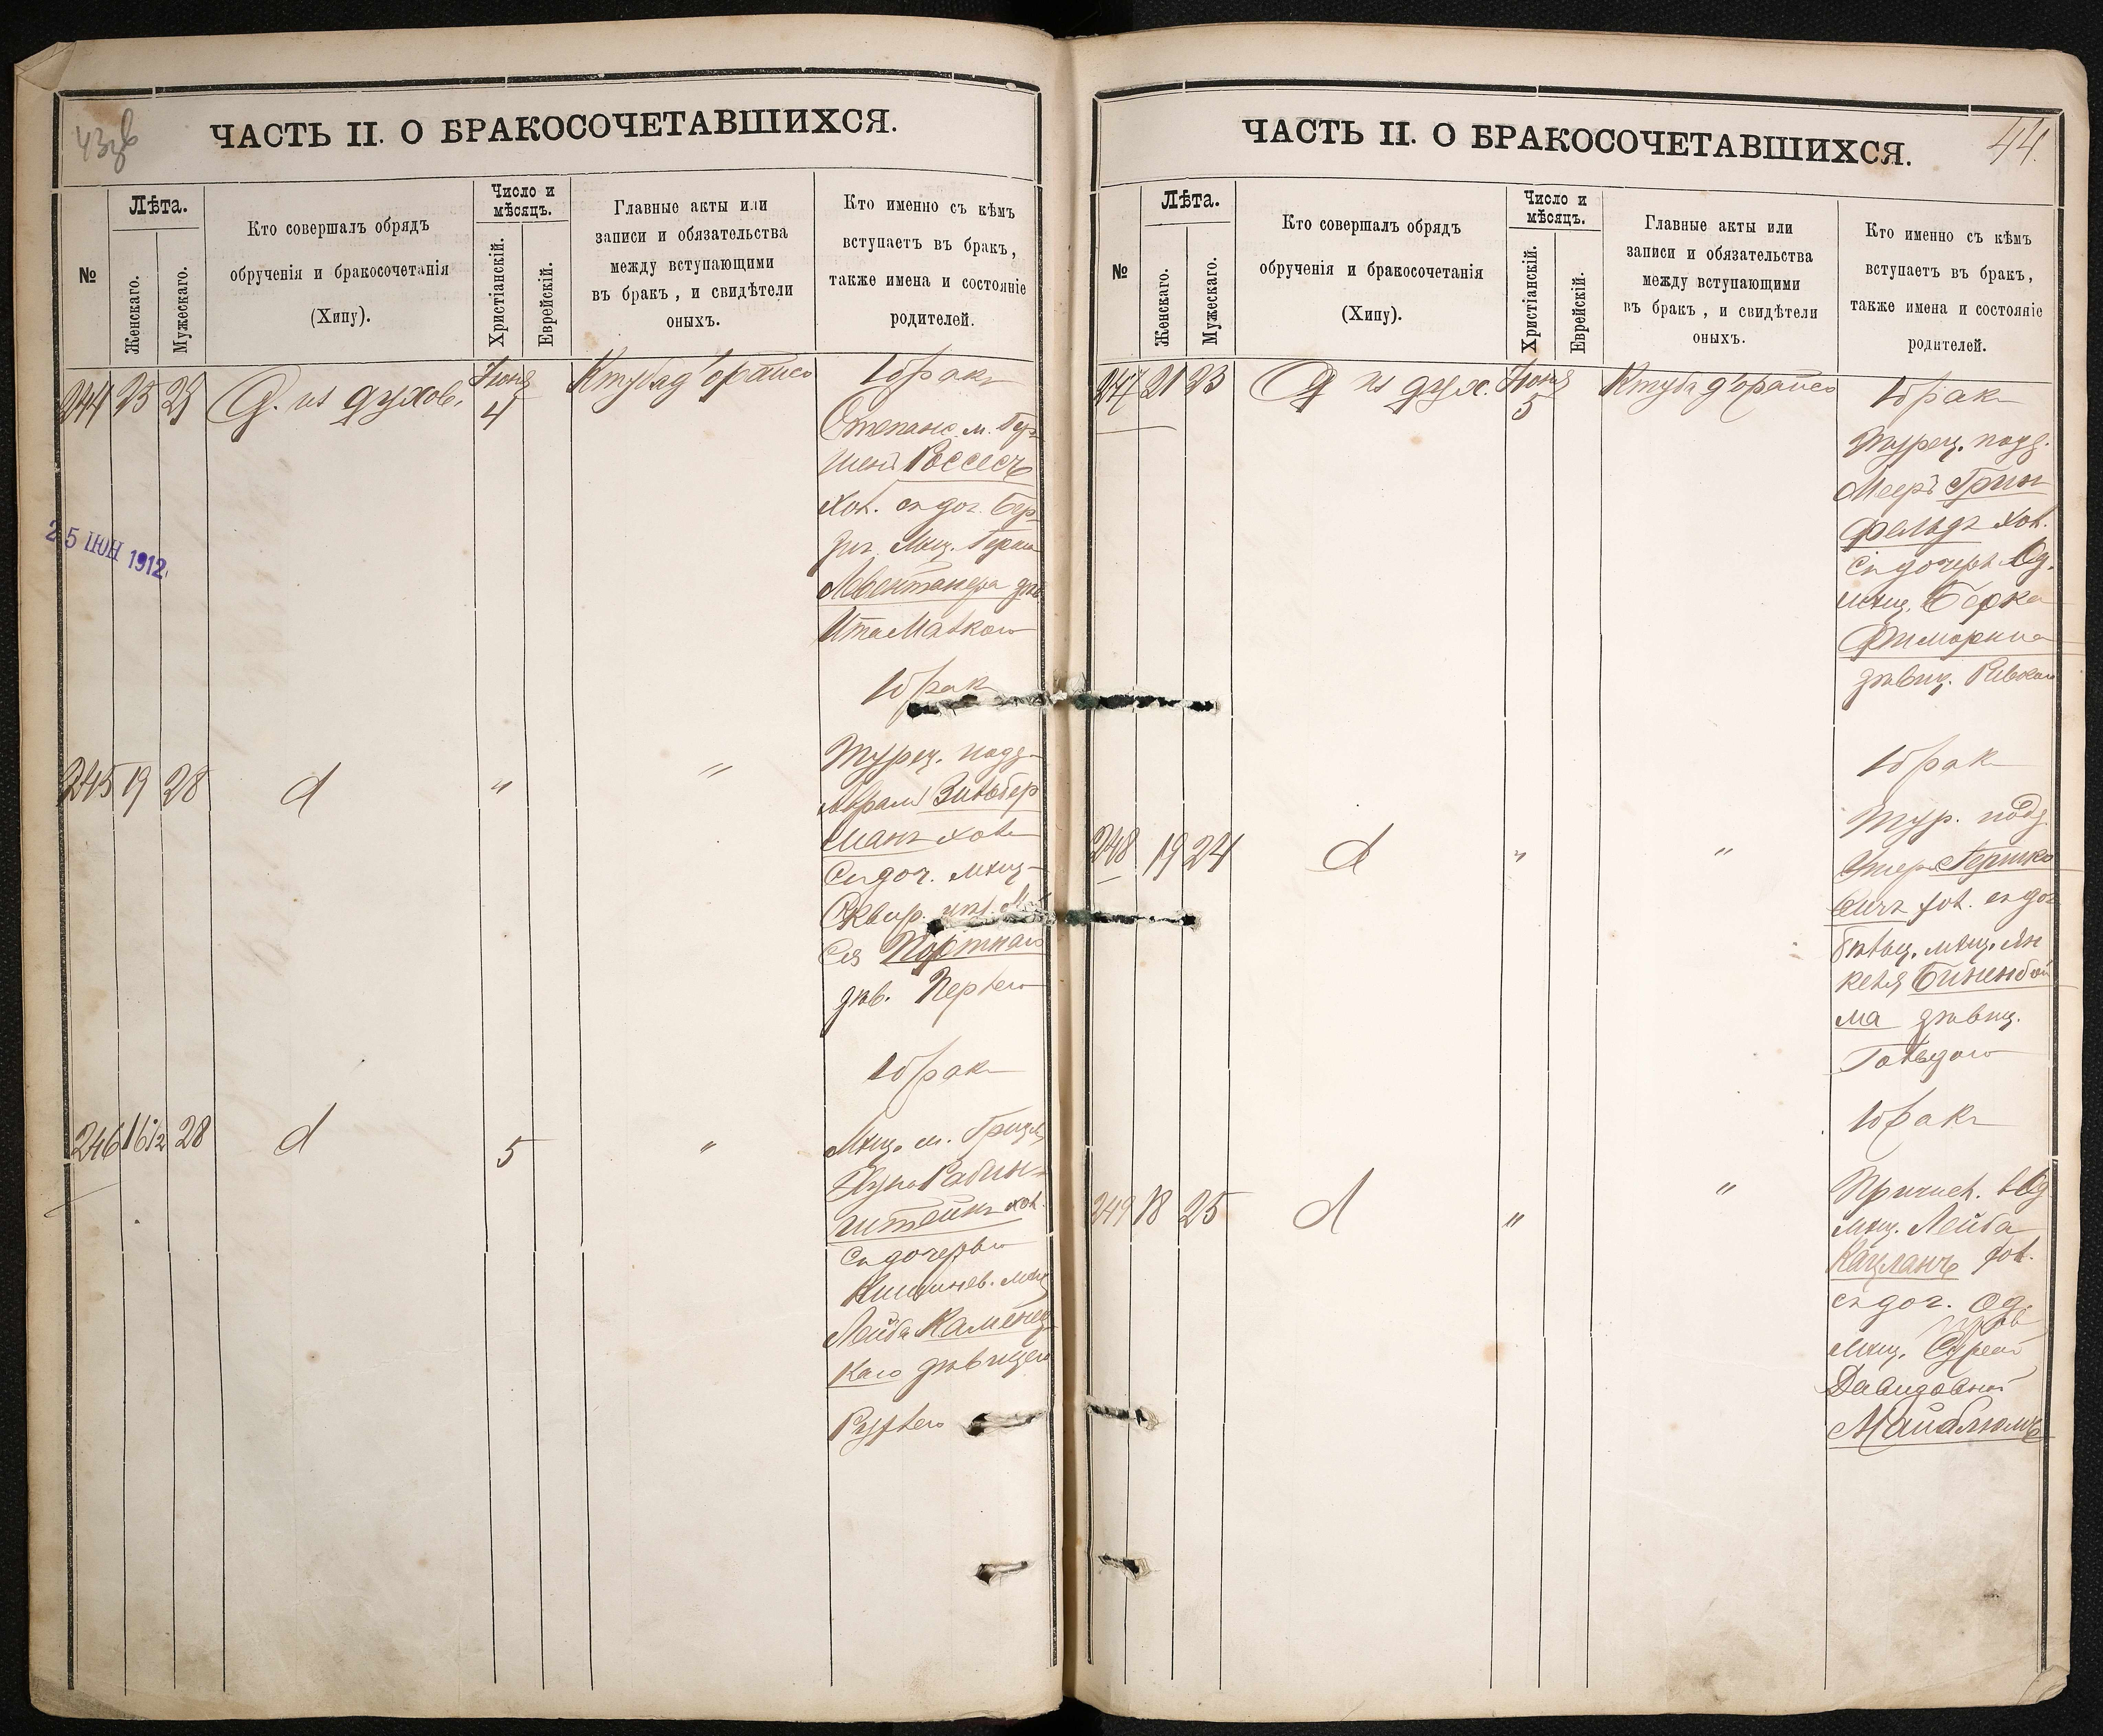 ЧАСТЬ II. О БРАКОСОЧЕТАВШИХСЯ.
№
Лѣта.
Женскаго.
Мужескаго.
Кто совершалъ обрядъ
обрученія и бракосочетанія
(Хипу).
Число и
мѣсяцъ.
Христіанскій.
Еврейскій.
Главные акты или
записи и обязательства
между вступающими
въ бракъ, и свидѣтели
оныхъ.
Кто именно съ кѣмъ
вступаетъ въ бракъ,
также имена и состояніе
родителей.
244 25 25 Д. из духов. Іюня 4 Ктуба д'орайсо
1 бракъ
Степанс. м.
Россесъ
хол. съ доч. Бер-
дич. Мѣщ. Герша
дѣв.
Ита Малкою
25 ІЮН 1912
245 19 28 d " "
1 бракъ
Турец. подд.
Абрамъ Зильбер
манъ хол.
Съ доч. мѣщ.
Сквир.
Портного
дѣв. Перлею
246 16½ 28 d 5 "
1 бракъ
Мѣщ. м.
Рабин-
штейнъ хол.
Съ дочерью
Кишинев. мѣщ
Лейба Каменец
каго дѣвицею
Рухлею
ЧАСТЬ II. О БРАКОСОЧЕТАВШИХСЯ.
44.
№
Лѣта.
Женскаго.
Мужескаго.
Кто совершалъ обрядъ
обрученія и бракосочетанія
(Хипу).
Число и
мѣсяцъ.
Христіанскій.
Еврейскій.
Главные акты или
записи и обязательства
между вступающими
въ бракъ, и свидѣтели
оныхъ.
Кто именно съ кѣмъ
вступаетъ въ бракъ,
также имена и состояніе
родителей.
247 21 23 Д из дух. Іюня 5 Ктуба д'орайсо
1 бракъ
Турец. подд.
Мееръ Грин
фельдъ хол.
Съ дочерью Од.
мѣщ. Берка
дѣвиц. Ривкою
248 19 24 d " "
1 бракъ
Тур. подд.
Гершко
вичъ хол. съ доч
мѣщ. Ян
келя Биненбой
ма дѣвиц.
Гольдою
249 18 25 d " "
1 бракъ
Причисл. в Од
мѣщ. Лейба
Кацланъ хол.
съ доч. Од.
мѣщ.
Давидовной
Майблюмъ